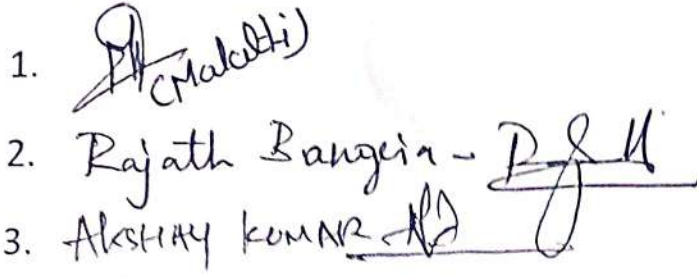 1. (Malathi)
2. Rajath Bangera -
3. AKSHAY KUMAR